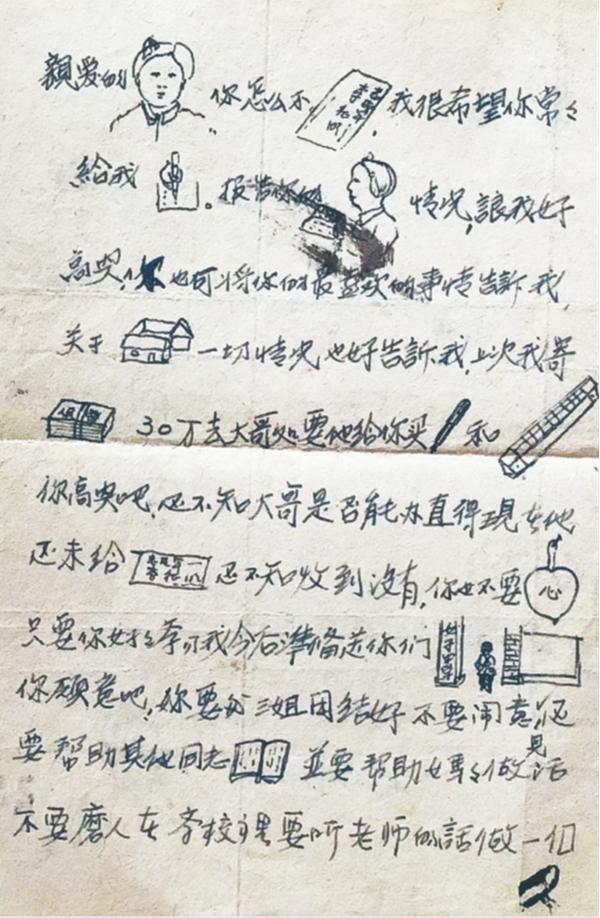 親爱的 你怎么不 我很希望你常々
給我 。报告你的 情况,讓我好
高兴,你也可将你们最喜欢的事情告訴我,
关于 一切情况也好告訴我,上次我寄
30万去大哥处要他给你买 和
你高兴吧,还不知大哥是否能办直得現在他
还未给 还不知收到没有,你也不要 心
只要你好好学习我今后準备送你们
你願意吧,你要和三姐团结好不要闹意见还
要帮助其他同志 並要帮助妈々做 活
不要磨人在学校里要听老师的話做一個